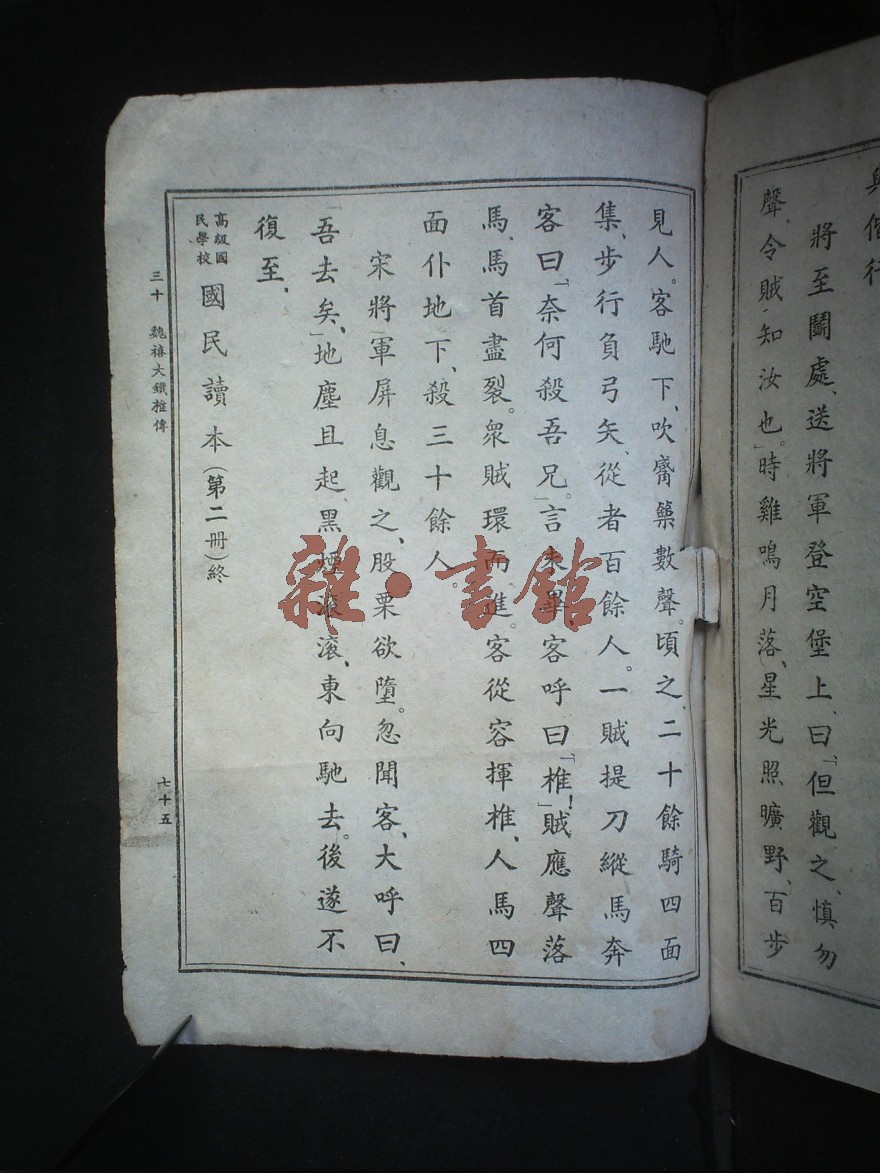 與偕行
將至鬭處、送將軍登空堡上、曰「但觀之、慎勿
聲、令賊知汝也。」時雞鳴月落、星光照曠野、百步
見人。客馳下、吹觱篥數聲。頃之、二十餘騎四面
集、步行負弓矢、從者百餘人。一賊提刀縱馬奔
客曰「奈何殺吾兄。」言未畢、客呼曰「椎！」賊應聲落
馬、馬首盡裂。衆賊環而進。客從容揮椎、人馬四
面仆地下、殺三十餘人。
宋將軍屏息觀之、股栗欲墮。忽聞客、大呼曰、
「吾去矣、」地塵且起、黑煙滾滾、東向馳去。後遂不
復至、
高級國民學校 國民讀本(第二冊)終
三十 魏禧大鐵椎傳 七十五
雜·書館